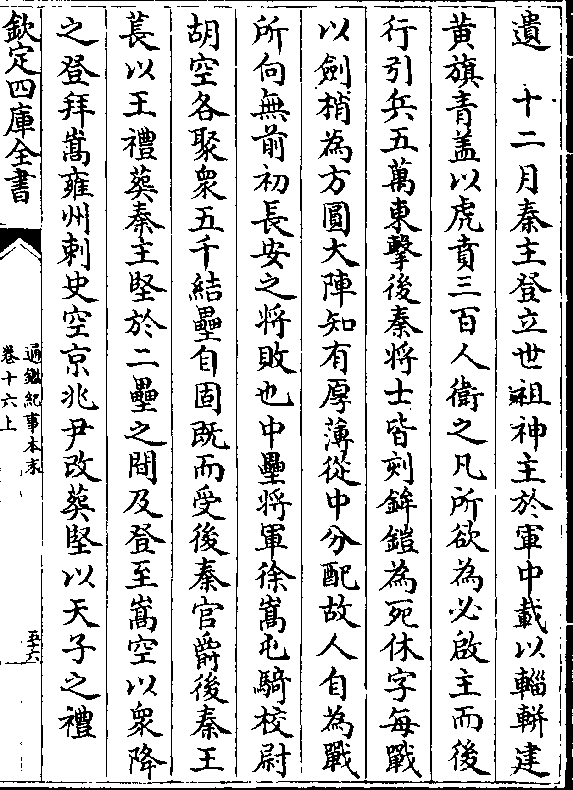 遺　十二月秦主登立世祖神主於軍中載以輜軿建
黄旗青盖以虎賁三百人衛之凡所欲為必啟主而後
行引兵五萬東擊後秦將士皆刻鉾鎧為死休字每戰
以劍矟為方圓大陣知有厚薄從中分配故人自為戰
所向無前初長安之將敗也中壘將軍徐嵩屯騎校尉
胡空各聚衆五千結壘自固既而受後秦官爵後秦王
萇以王禮葬秦主堅於二壘之間及登至嵩空以衆降
之登拜嵩雍州刺史空京兆尹改葬堅以天子之禮
欽定四庫全書
通鑑紀事本末
卷十六上
五十六